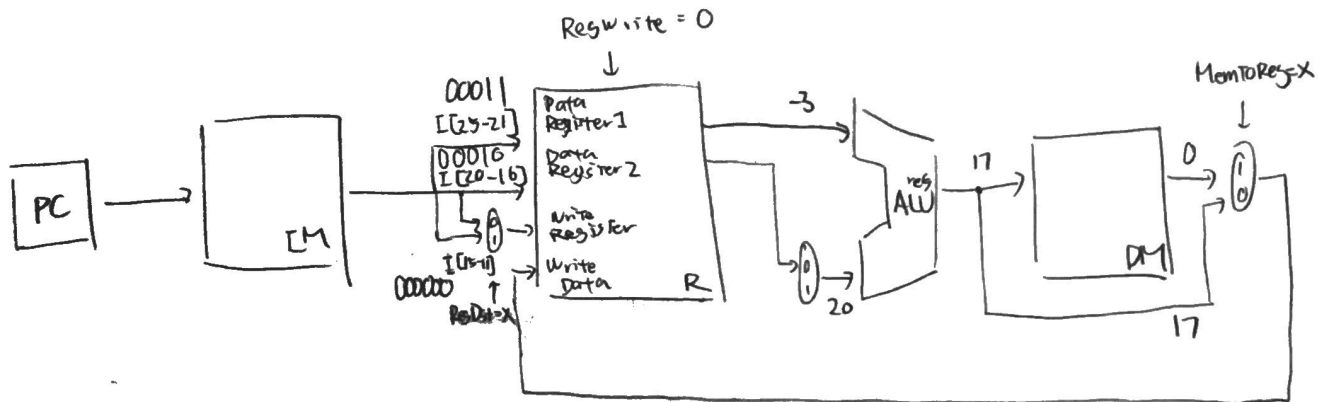 RegWrite = 0
MemToReg=X
00011
I[25-21]
00010
I[20-16]
I[15-11]
000000
RegDst=X
0
1
Data
Register 1
Data
Register 2
Write
Register
Write
Data
R
PC
IM
-3
0
1
20
ALU
17
DM
0
1
0
17